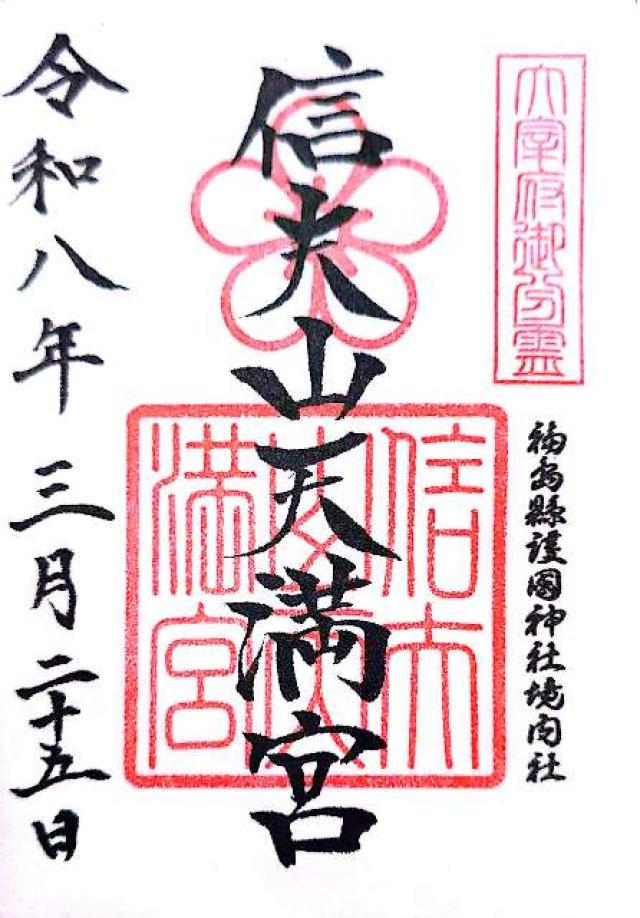 大宰府御分霊
福島縣護國神社境内社
信夫山天満宮
信夫山天満宮
令和八年三月二十五日